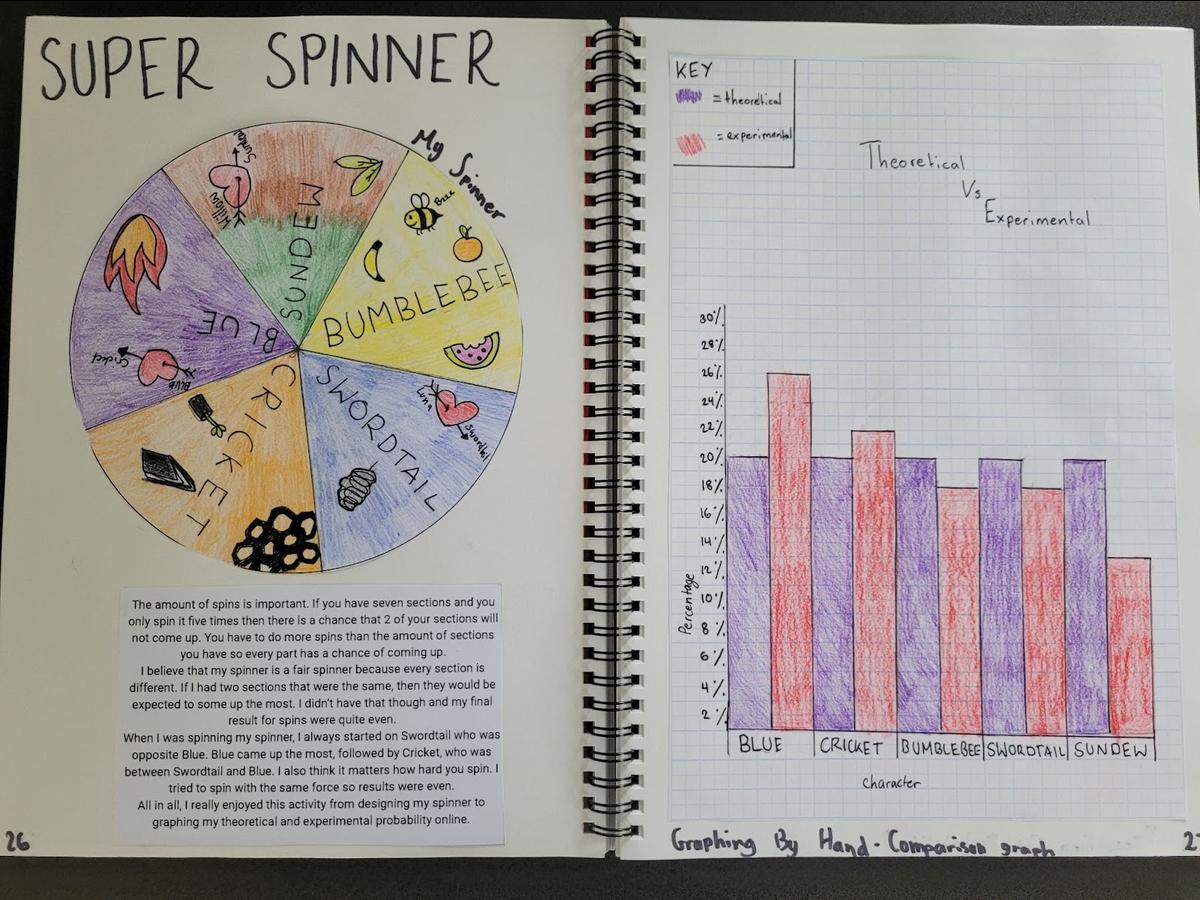 SUPER SPINNER
My Spinner
Sundew
Willow
SUNDEW
Bree
BUMBLEBEE
BLUE
Cricket
BLUE
CRICKET
SWORDTAIL
Luna
Swordtail
The amount of spins is important. If you have seven sections and you
only spin it five times then there is a chance that 2 of your sections will
not come up. You have to do more spins than the amount of sections
you have so every part has a chance of coming up.
I believe that my spinner is a fair spinner because every section is
different. If I had two sections that were the same, then they would be
expected to some up the most. I didn't have that though and my final
result for spins were quite even.
When I was spinning my spinner, I always started on Swordtail who was
opposite Blue. Blue came up the most, followed by Cricket, who was
between Swordtail and Blue. I also think it matters how hard you spin. I
tried to spin with the same force so results were even.
All in all, I really enjoyed this activity from designing my spinner to
graphing my theoretical and experimental probability online.
26
KEY
= theoretical
= experimental
Theoretical
Vs
Experimental
30%
28%
26%
24%
22%
20%
18%
16%
14%
12%
10%
8%
6%
4%
2%
Percentage
BLUE CRICKET BUMBLEBEE SWORDTAIL SUNDEW
character
Graphing By Hand - Comparison graph